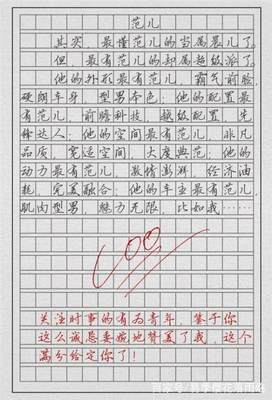 范儿
其实，最懂范儿的当属晨儿了。
但，最有范儿的却属超级派了。
他的外形最有范儿，霸气前脸，
硬朗车身，型男本色；他的配置最
有范儿，前瞻科技，越级配置，先
锋达人；他的空间最有范儿，非凡
品质，宽适空间，大度典范；他的
动力最有范儿，激情澎湃，经济油
耗，完美融合；他的车主最有范儿，
肌肉型男，魅力无限，比如我……
100
关注时事的有为青年，鉴于你
这么诚恳委婉地赞美了我，这个
满分给定你了！